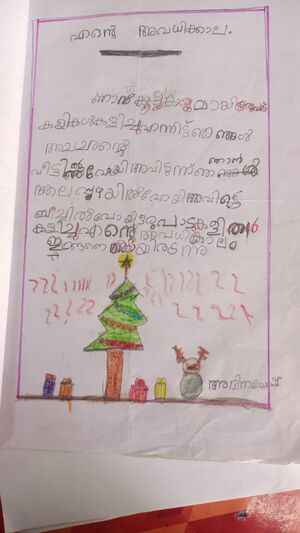 എന്റെ അവധിക്കാലം
ഞാൻ കൂട്ടുകാരുമായി ഒരുപാട്
കളികൾ കളിച്ചു എന്നിട്ട് ഞങ്ങൾ
അച്ഛന്റെ
വീട്ടിൽ പോയി അവിടന്ന് ഞാൻ
ആലപ്പുഴയിൽ പോയി അവിടെ
ബീച്ചിൽ പോയി ഒരുപാട് കളികൾ
കളിച്ചു എന്റെ അവധികാലം
ഇങ്ങനെ ആയിരുന്നു